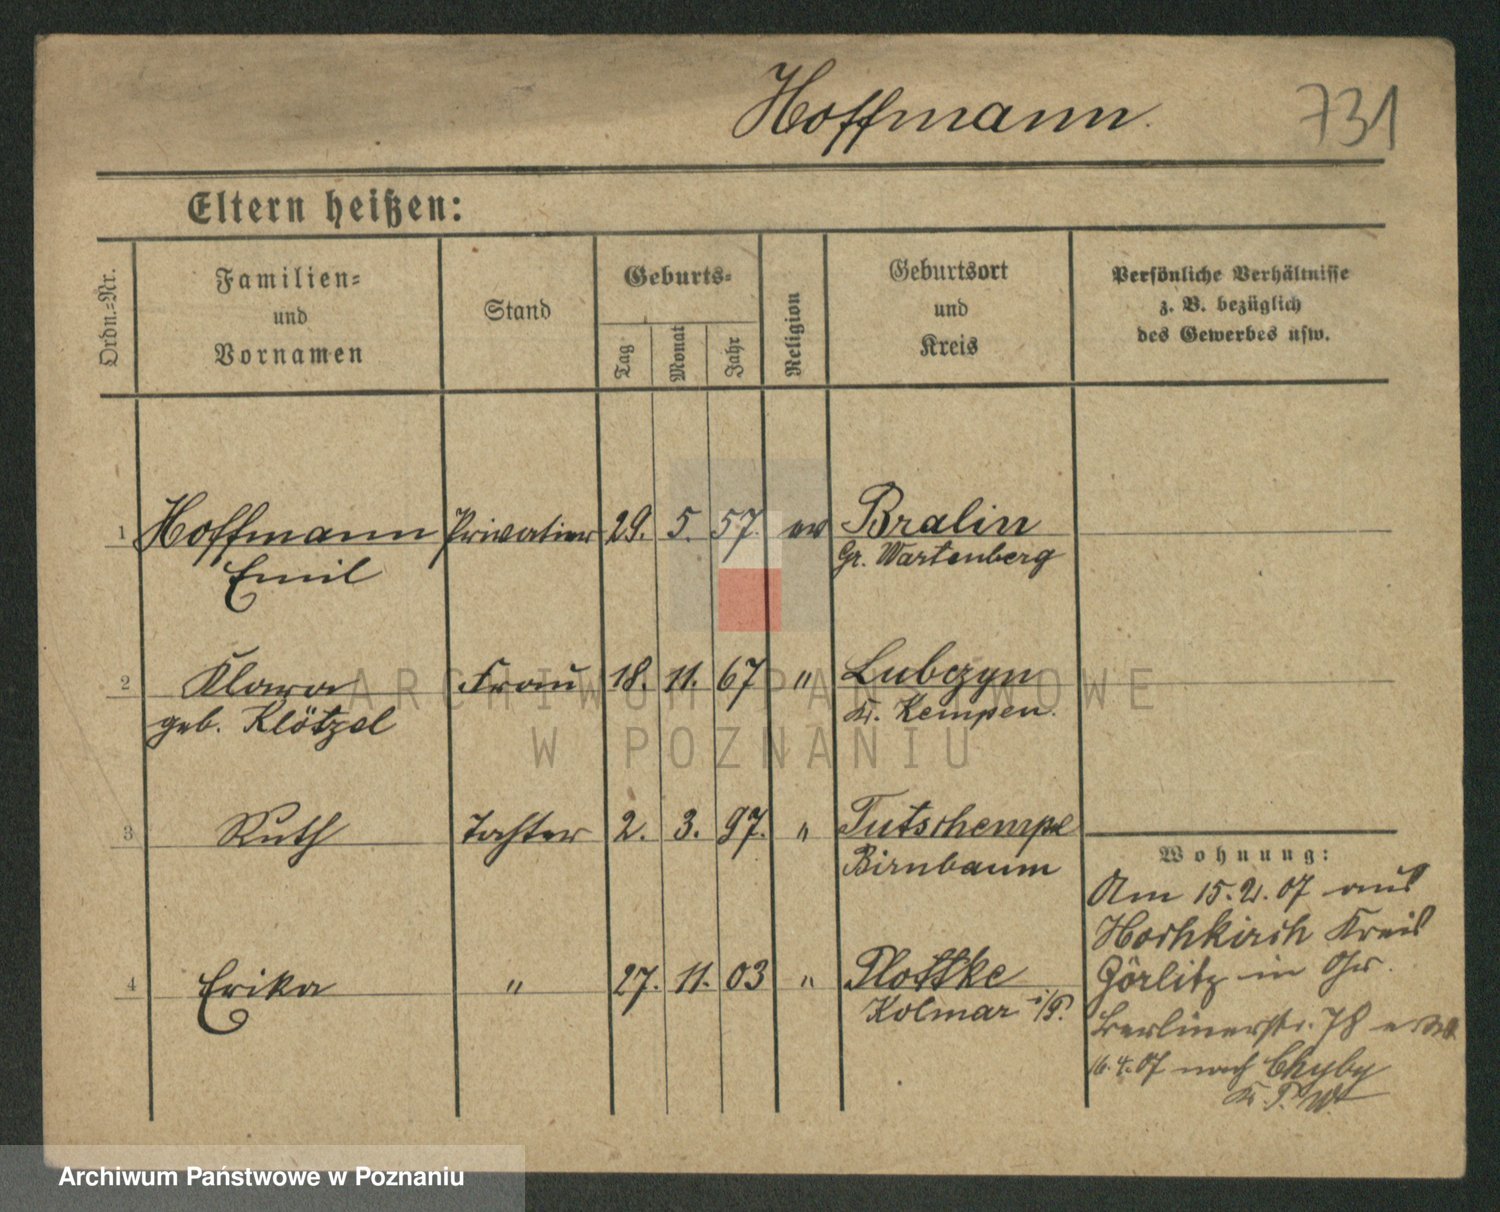 Hoffmann.
731
Eltern heißen:
Ordn.-Nr.
Familien-
und
Vornamen
Stand
Geburts-
Tag
Monat
Jahr
Religion
Geburtsort
und
Kreis
Persönliche Verhältnisse
z. B. bezüglich
des Gewerbes usw.
1 Hoffmann Privatier 29. 5. 57. ev Bralin
Emil Gr. Wartenberg
2 Klara Frau 18. 11. 67 " Lubczyn
geb. Klötzel Kr. Kempen.
3 Ruth Tochter 2. 3. 97. " Tutschempe
Birnbaum
4 Erika " 27. 11. 03 " Plottke
Kolmar i/P.
Wohnung:
Am 15. 2. 07 aus
Hochkirch Kreis
Görlitz in
Berlinerstr. 78
16. 4. 07 nach Chyby
Kr. P. W.
ARCHIWUM PAŃSTWOWE
W POZNANIU
Archiwum Państwowe w Poznaniu